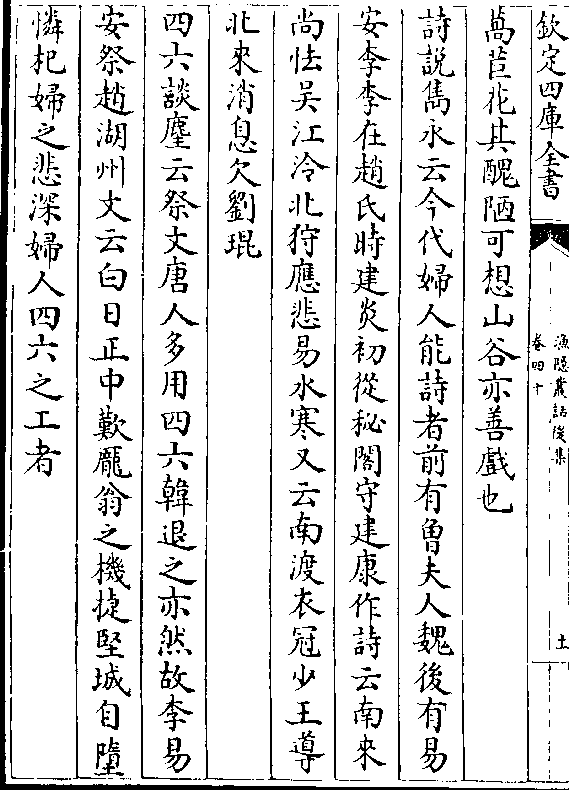 欽定四庫全書
漁隱叢話後集
卷四十
土
萵苣花其醜陋可想山谷亦善戲也
詩說雋永云今代婦人能詩者前有曾夫人魏後有易
安李李在趙氏時建炎初從秘閣守建康作詩云南來
尚怯吴江冷北狩應悲易水寒又云南渡衣冠少王導
北來消息欠劉琨
四六談麈云祭文唐人多用四六韓退之亦然故李易
安祭趙湖州文云白日正中歎龎翁之機捷堅城自墮
憐杞婦之悲深婦人四六之工者